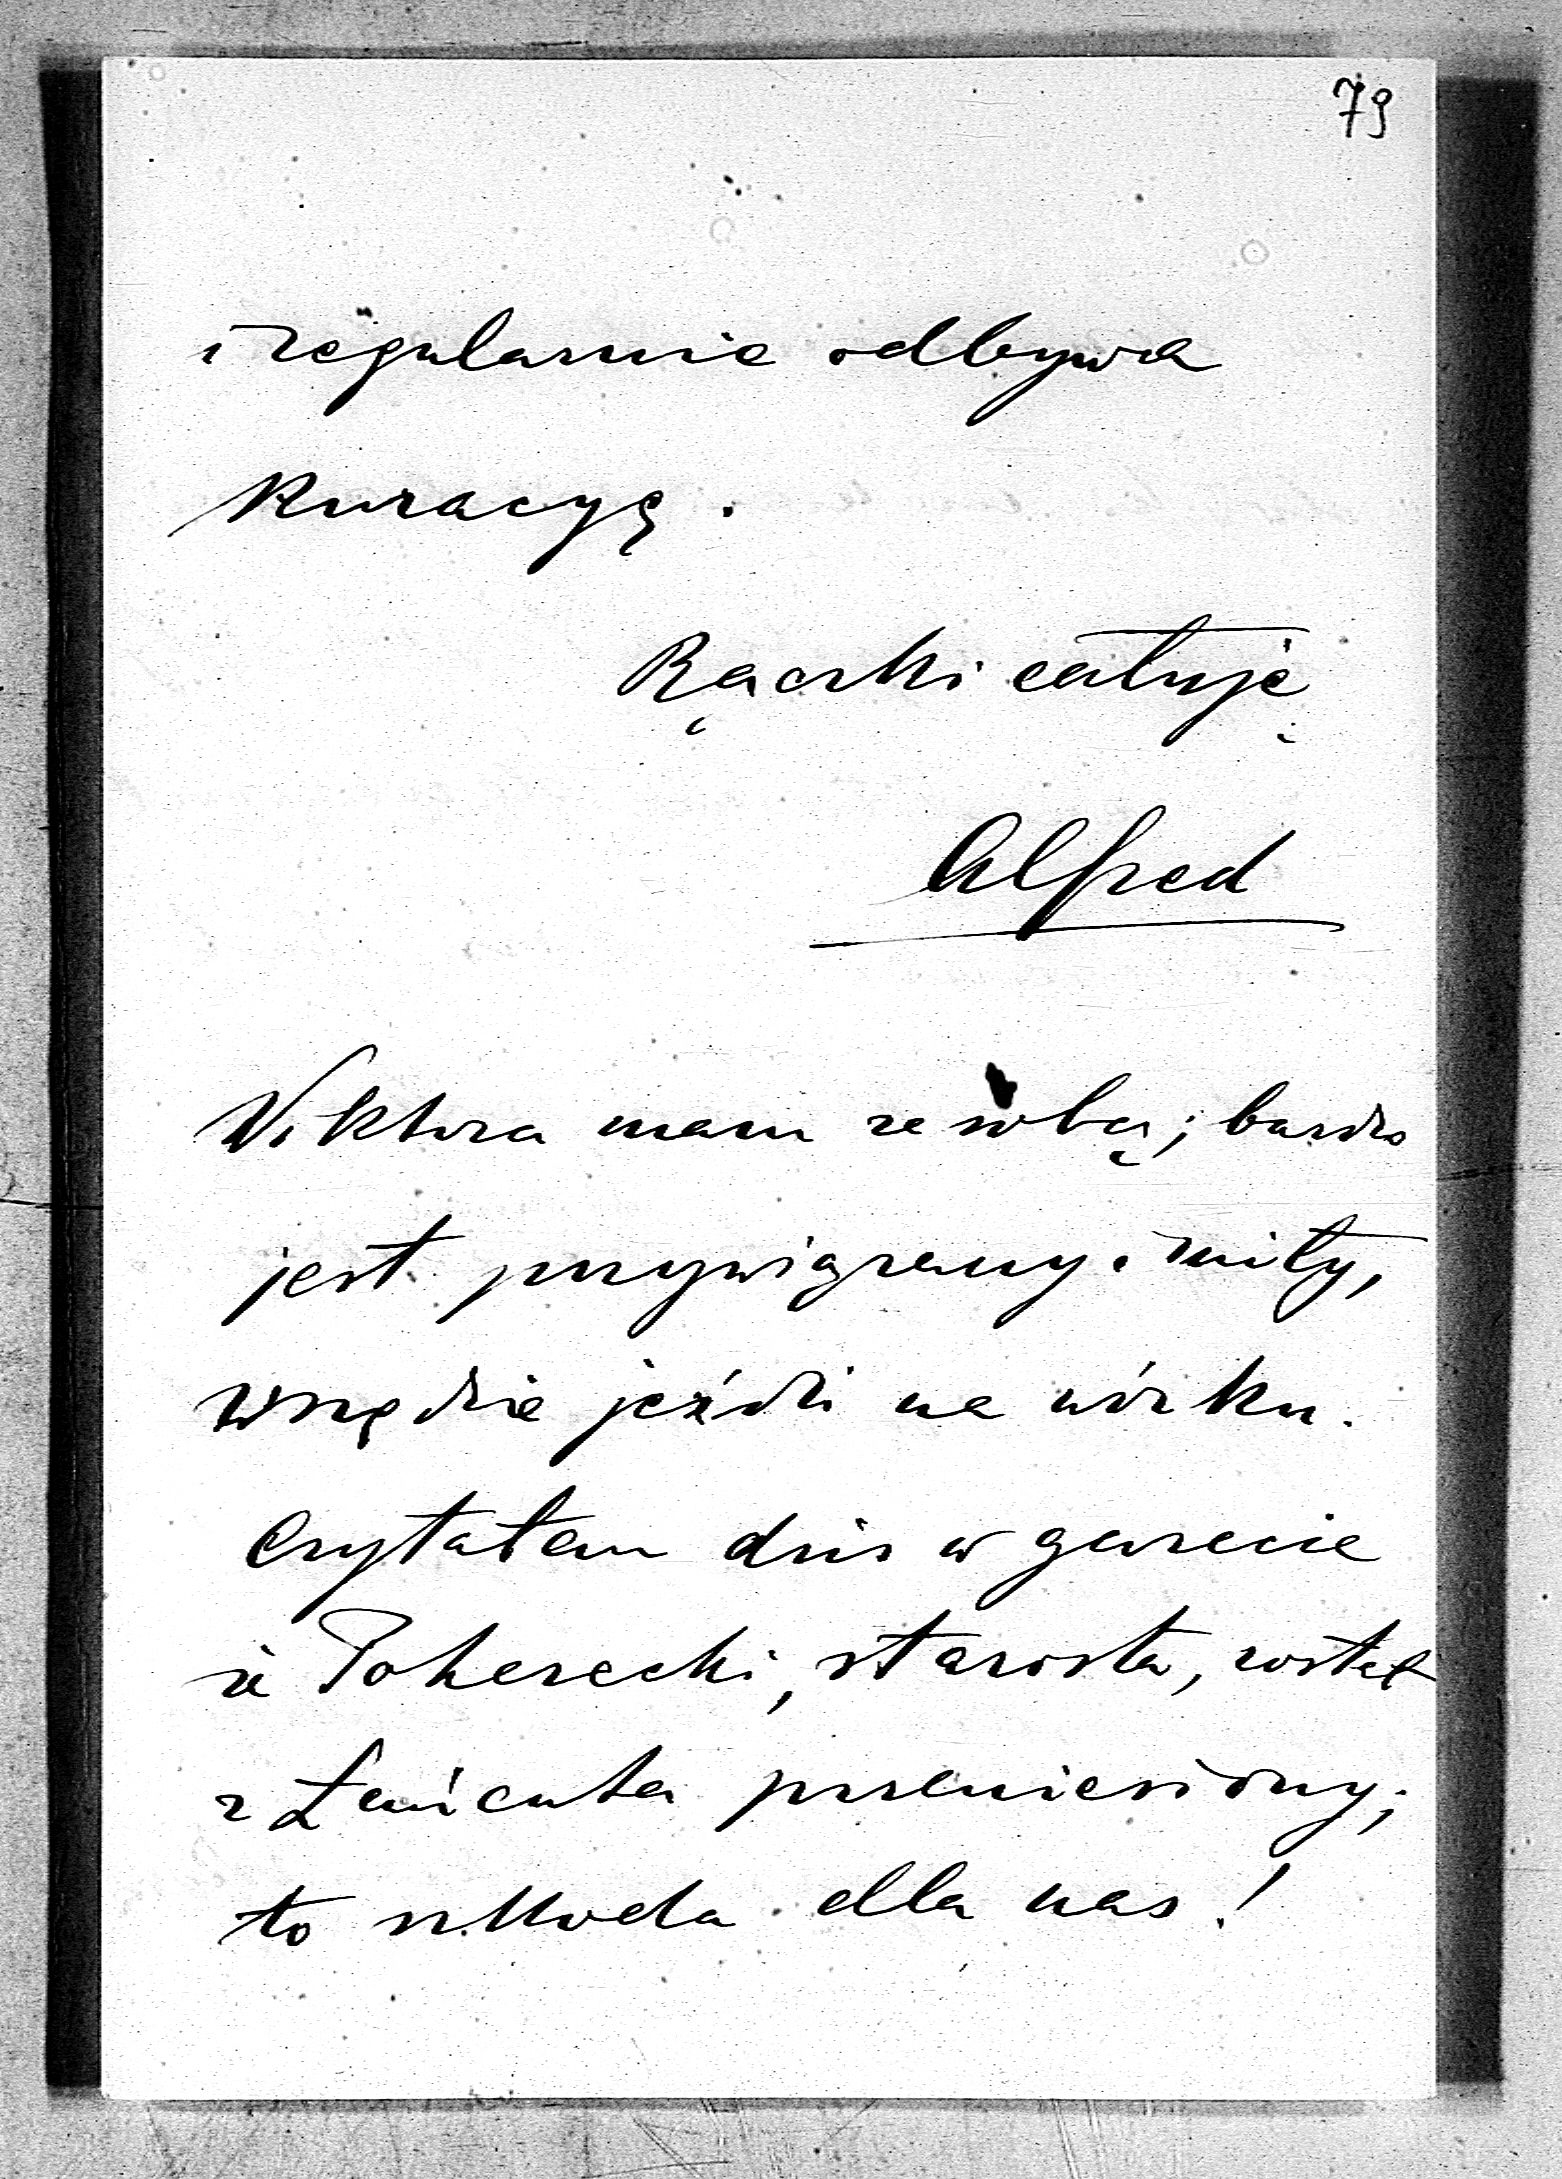 79
i regularnie odbywa
kuracyę.
Rączki całuję
Alfred
Wiktora mam ze sobą; bardzo
jest przywiązany i miły,
wszędzie jeździ na wózku.
Czytałem dziś w gazecie
że Pohorecki, starosta, został
z Łańcuta przeniesiony;
to szkoda dla nas!